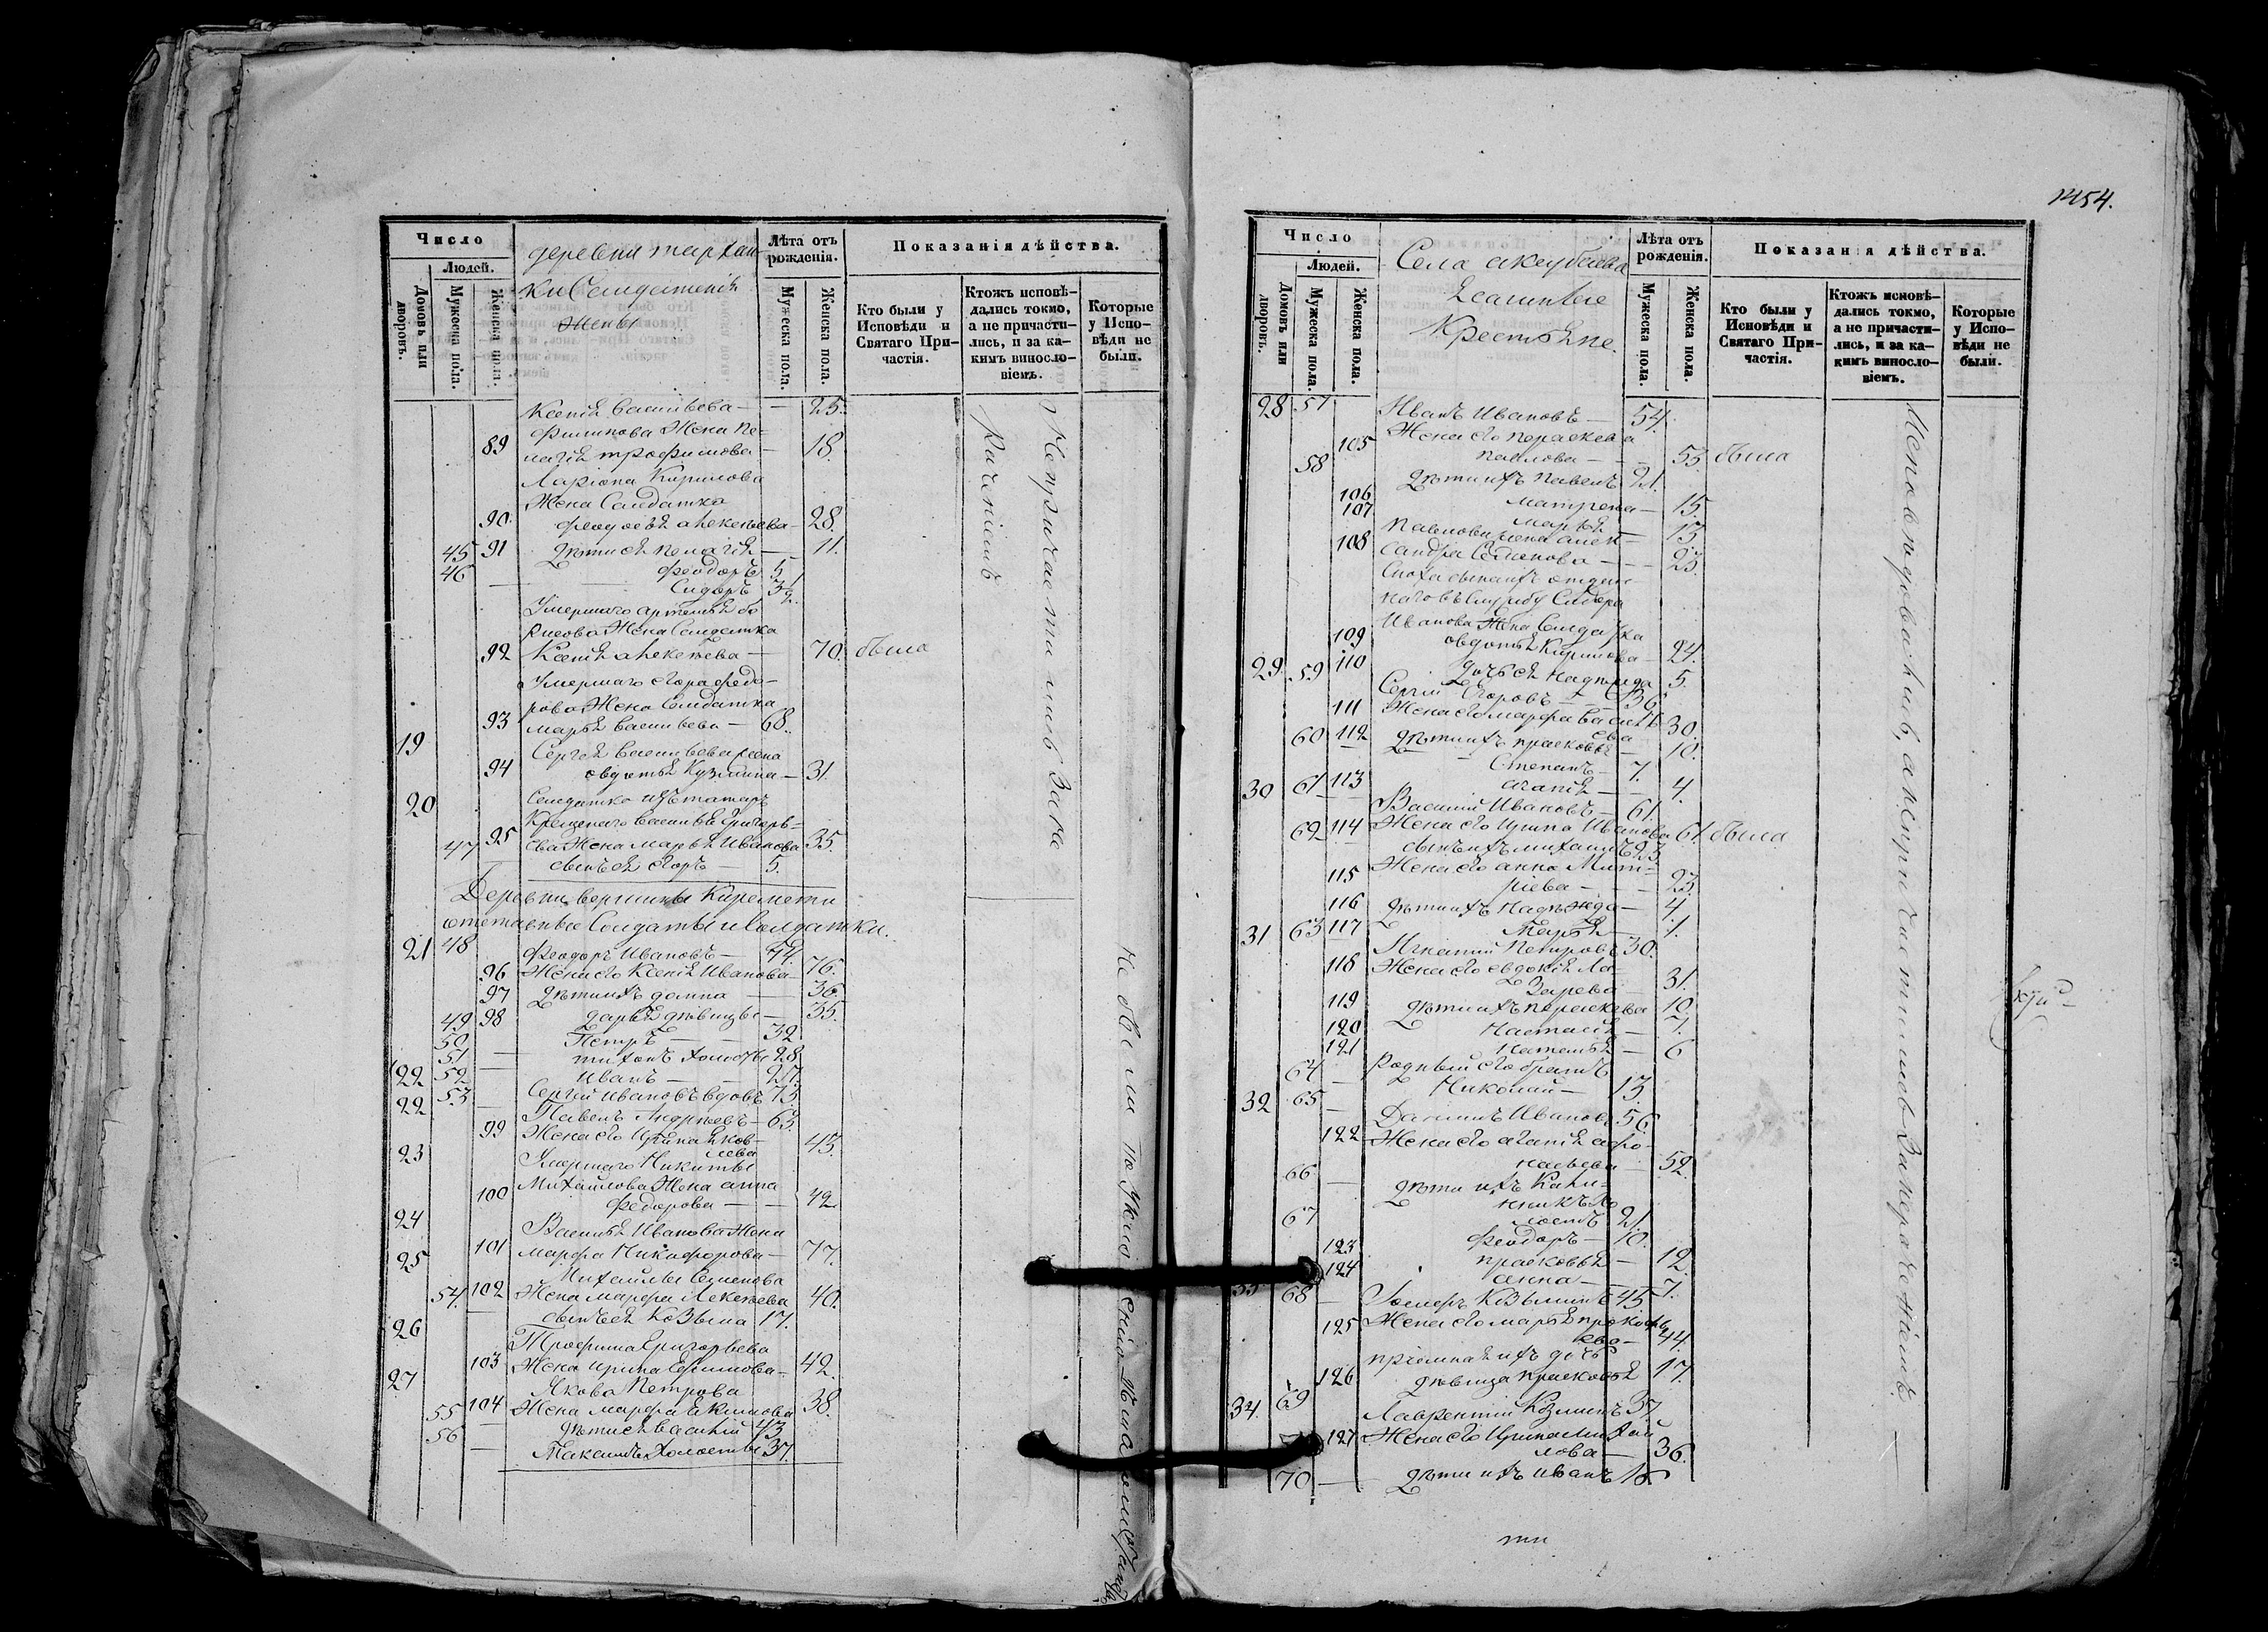 Число
деревни тархан-
Лѣта отъ рожденія.
Показанія дѣйства.
Людей.
Домовъ или дворовъ.
Мужеска пола.
Женска пола.
жены
Мужеска пола.
Женска пола.
Кто были у Исповѣди и Святаго Причастія.
Ктожъ исповѣдались токмо, а не причастились, и за какимъ винословіемъ.
Которые у Исповѣди не были.
Ксенія Васильева — 25.
Филипова Жена Пе=
89 лагія трофимова — 18.
Ларіона Кирилова
Жена Салдатка
90. Феодосія Алексѣева — 28.
91 дѣти ея Пелагія — 11.
45 Феодоръ 5
46 Сидоръ 3 1/2
Умершаго Артемія Бо
рисова Жена Салдатка
92 Ксенія Алексѣева — 70. была
Умершаго Егора Федо-
рова Жена Салдатка
93 Марія Васильева — 68.
19 Сергѣя Васильева жена
94 Авдотья Кузмина — 31.
20 Салдатка изъ татаръ
Крещенаго Василья Григорь=
95 ева Жена Марья Иванова 35.
47 сынъ ея Егоръ — 5.
Деревни вершины Киремети
отставные Солдаты и Солдатки.
21 48 Феодоръ Ивановъ — 74.
96 Жена его Ксенія Иванова 76.
97 дѣти ихъ домна — 36.
98 дарья дѣвицы — 35.
49 Петръ — 32
50 тихонъ холосты 28
51 Иванъ — 27.
22 52 Сергѣй Ивановъ вдовъ 73.
22 53 Павелъ Андрѣевъ — 63.
99 Жена его Ирина Яков-
лева 43.
23 Умершаго Никиты
Михайлова Жена анна
100 Федорова — 42
24 Василья Иванова Жена
101 марфа Никифорова — 77.
25 Михайлы Семенова
102 Жена марфа Алексѣева 40.
54. сынъ ея Козьма 17.
26 Трофима Григорьева
103 Жена Ирина Ефимова — 42.
27 Якова Петрова
104 Жена марфа Якимова 38.
55 дѣти ея Василій 43
56 Максимъ Холосты 37.
Непричастились За мало
раченіемъ
454.
Число
Села акзубаева
Лѣта отъ рожденія.
Показанія дѣйства.
Людей.
Ясашные
Крестьяне.
Домовъ или дворовъ.
Мужеска пола.
Женска пола.
Мужеска пола.
Женска пола.
Кто были у Исповѣди и Святаго Причастія.
Ктожъ исповѣдались токмо, а не причастились, и за какимъ винословіемъ.
Которые у Исповѣди не были.
28 57 Иванъ Ивановъ — 54.
Жена его параскева
105 павлова — 53. была
58 дѣти ихъ павелъ 21.
106 матрена — 15.
107 марья — 13
Павлова жена алек-
108 сандра Семенова — 23.
Сноха
Сидора
Иванова Жена Солдатка
109 авдотья Кирилова — 24.
110 дочь ея Надежда 5.
29 59 Сергій Егоровъ — 36
111 Жена его марфа Василь
ева 30.
112 дѣти ихъ прасковья — 10.
60 Степанъ — 7.
113 агапія — 4.
30 61 Василій Ивановъ — 61.
114 Жена его Ирина Иванова 61. была
62 сынъ ихъ михаилъ 23.
Жена его анна Мит-
115 ріева — 23.
116 дѣти ихъ Надежда — 4.
117 Марья — 1.
31 63 Игнатій Петровъ 30.
118 Жена его евдокія Ла-
Зарева 31.
119 дѣти ихъ параскева 10.
120 Настасія — 7.
121 Наталья — 6
Родный его братъ
64 Николай — 13.
32 65 Данилъ Ивановъ 56.
122 Жена его агапія афо-
насьева — 52.
66 дѣти ихъ Кали-
никъ Хо
лостъ 21.
67 Феодоръ — 10.
123 прасковья — 12.
124 анна — 7.
33 68 Козьминъ 45
125 Жена его марья прокофь
ева — 44.
126 дѣвица прасковья 17.
34. 69 Лаврентій Козминъ 37.
127 Жена его Ирина Михай
лова — 36.
70 дѣти ихъ иванъ 16
Исповѣдовались, а непричастились За нерачениемъ